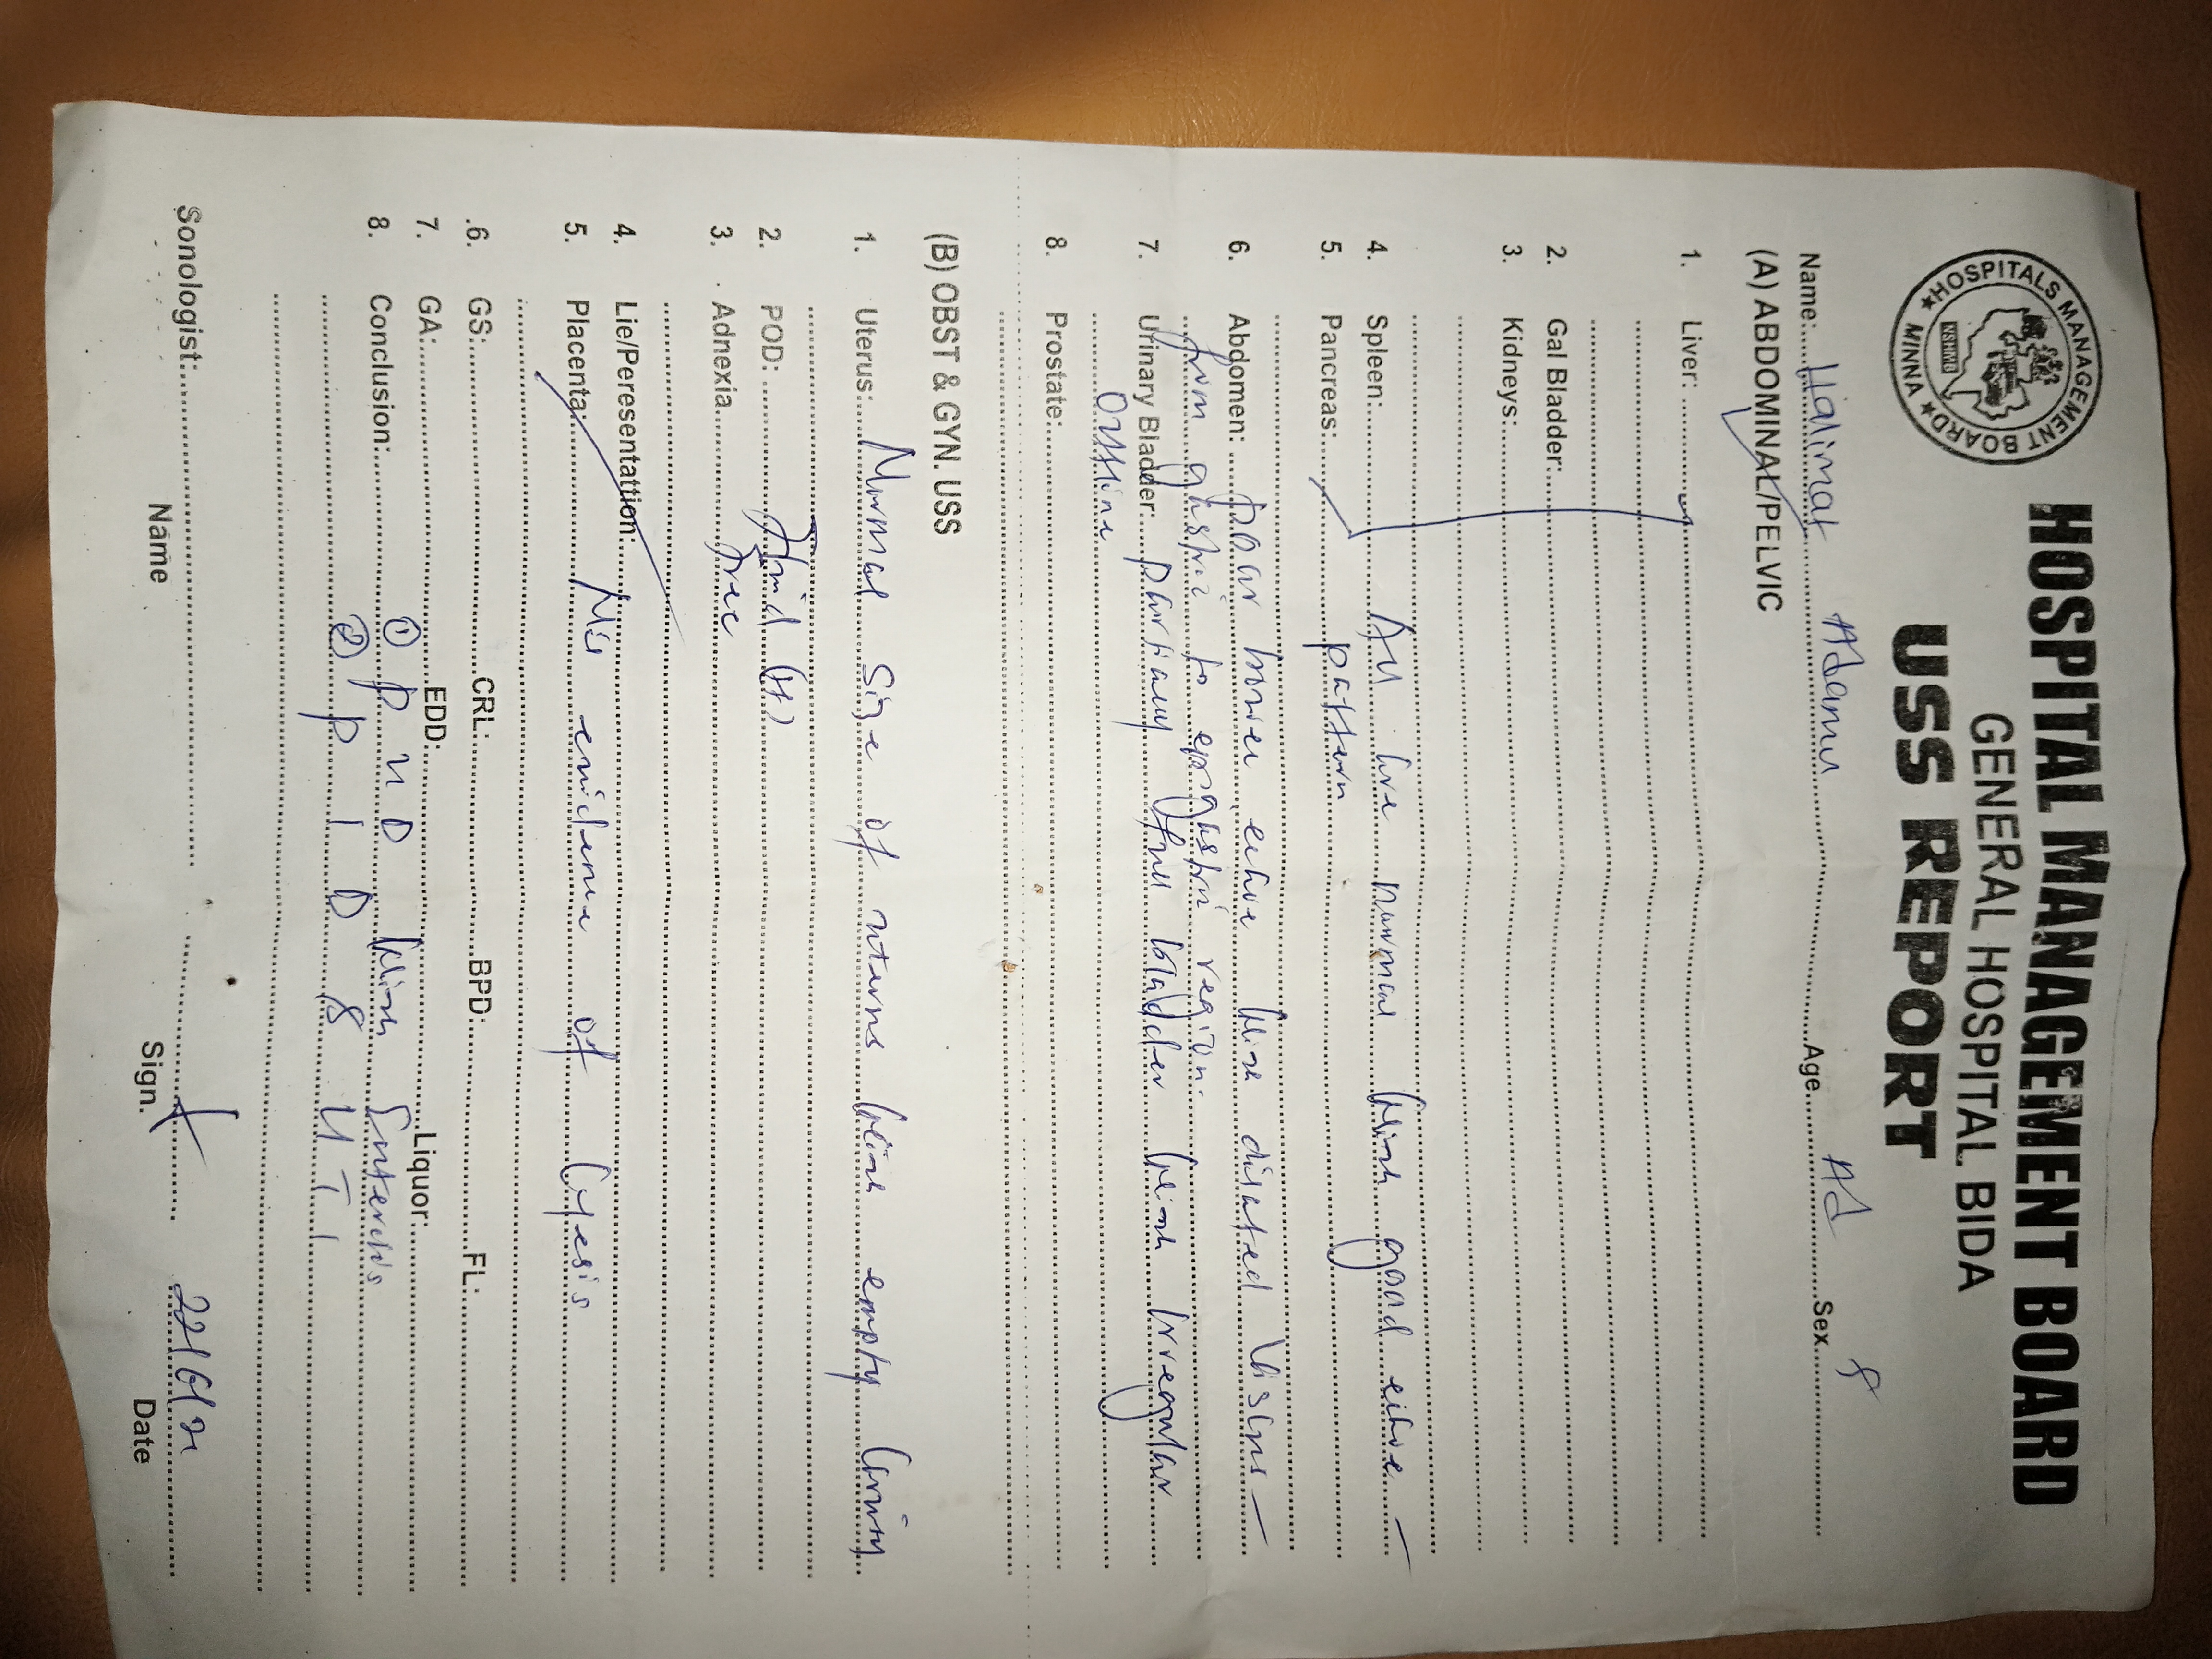 HOSPITAL MANAGEMENT BOARD
GENERAL HOSPITAL BIDA
USS REPORT
★HOSPITALS MANAGEMENT BOARD★ MINNA
NSHMB
Name: Halimat Adamu Age Ad Sex F
(A) ABDOMINAL/PELVIC
1. Liver:
2. Gal Bladder:
3. Kidneys:
4. Spleen: All are normal with good echoe
5. Pancreas: pattern
6. Abdomen: poor bowel echoe with dilated
from gastric to epigastric region.
7. Urinary Bladder: partially full bladder with irregular
outline
8. Prostate:
(B) OBST & GYN. USS
1. Uterus: Normal size of uterus with empty cavity
2. POD: Fluid (+)
3. Adnexia free
4. Lie/Peresentattion:
5. Placenta: No evidence of cyesis
.6. GS: CRL: BPD: FL.
7. GA: EDD: Liquor:
8. Conclusion: ① P U D with Enteritis
② P I D & U T I
Sonologist: 22/6/21
Name Sign. Date